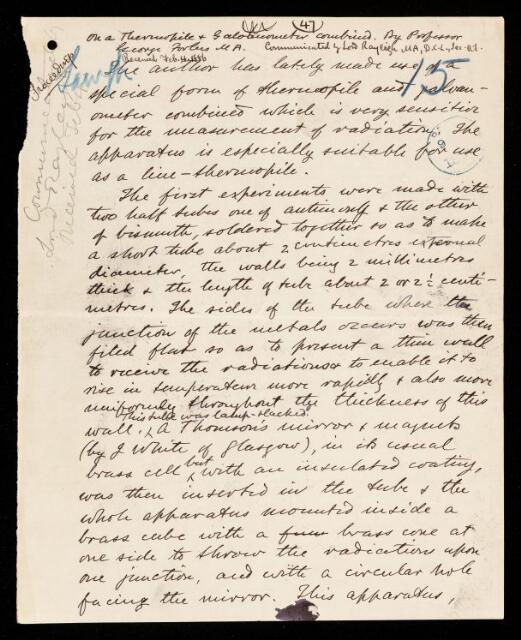 (47)
On a Thermopile & Galvanometer combined. By Professor
George Forbes M A. Communicated by Lord Rayleigh, MA, D.C.L., Sec. R.S.
Received Feb. 4, 1886
The author has lately made use of a
special form of thermopile and galvan-
ometer combined which is very sensitive
for the measurement of radiation. The
apparatus is especially suitable for use
as a line-thermopile.
The first experiments were made with
two half tubes one of antimony & the other
of bismuth, soldered together so as to make
a short tube about 2 centimetres external
diameter, the walls being 2 millimetres
thick & the length of tube about 2 or 2½ centi-
metres. The sides of the tube where the
junction of the metals occurs was then
filed flat so as to present a thin wall
to receive the radiations & to enable it to
rise in temperature more rapidly & also more
uniformly throughout the thickness of this
This tube was lamp-blacked.
wall. A Thomson's mirror & magnets
(by J White of Glasgow), in its usual
brass cell but with an insulated coating,
was then inserted in the tube & the
whole apparatus mounted inside a
brass cube with a brass cone at
one side to throw the radiations upon
one junction, and with a circular hole
facing the mirror. This apparatus,
Proceedings
15
Communicated
Lord Rayleigh
Received Feb